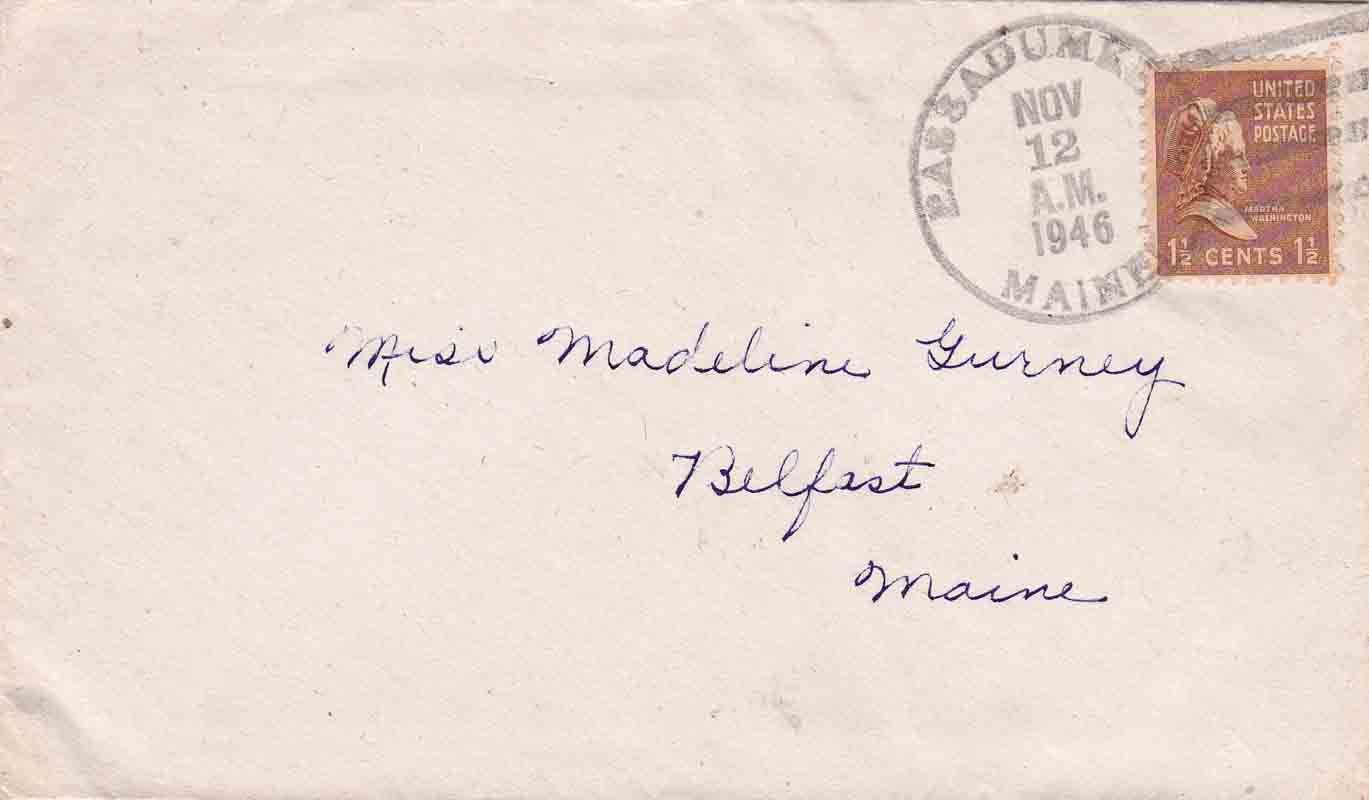 PASSADUMKE
NOV
12
A.M.
1946
MAINE
UNITED
STATES
POSTAGE
MARTHA
WASHINGTON
1½ CENTS 1½
Miss Madeline Gurney
Belfast
Maine